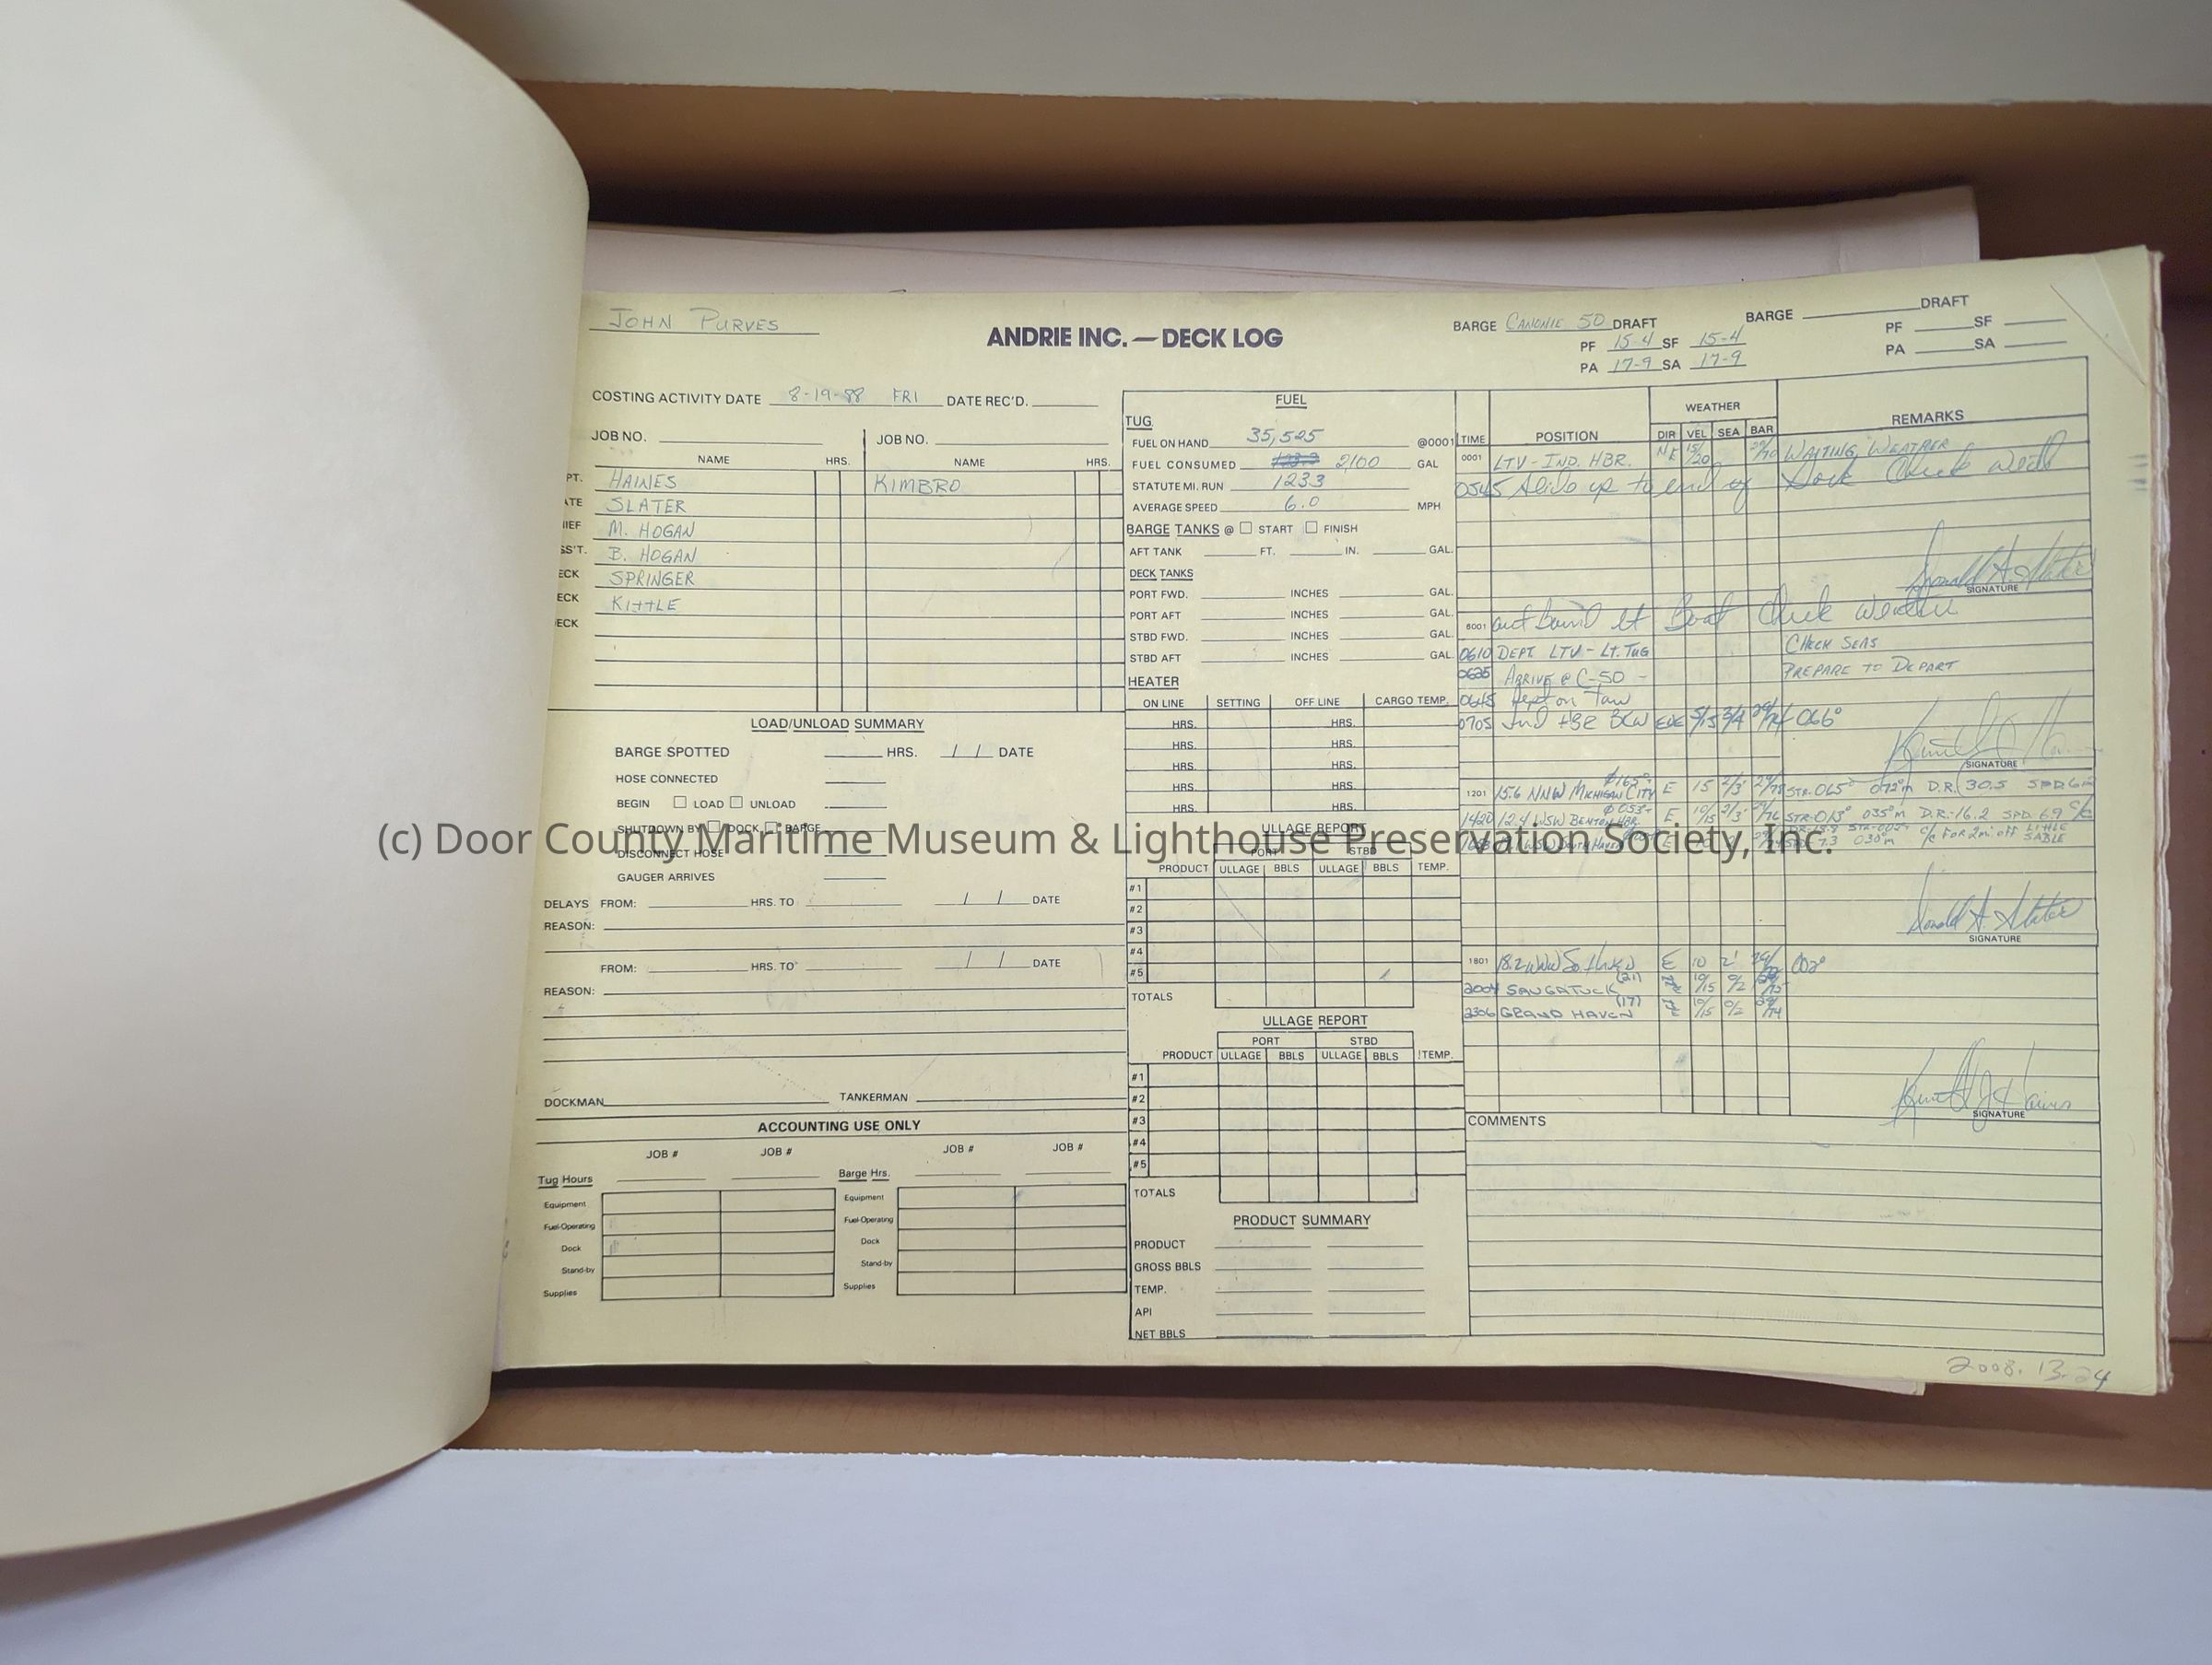 JOHN PURVES
ANDRIE INC. — DECK LOG
BARGE CANONIE 50 DRAFT
PF 15-4 SF 15-4
PA 17-9 SA 17-9
BARGE DRAFT
PF SF
PA SA
COSTING ACTIVITY DATE 8-19-88 FRI DATE REC'D.
JOB NO. JOB NO.
NAME HRS. NAME HRS.
PT. HAINES KIMBRO
ATE SLATER
IEF M. HOGAN
SS'T. B. HOGAN
ECK SPRINGER
ECK KITTLE
ECK
LOAD/UNLOAD SUMMARY
BARGE SPOTTED HRS. / / DATE
HOSE CONNECTED
BEGIN LOAD UNLOAD
SHUTDOWN BY DOCK BARGE
DISCONNECT HOSE
GAUGER ARRIVES
DELAYS FROM: HRS. TO / / DATE
REASON:
FROM: HRS. TO / / DATE
REASON:
DOCKMAN TANKERMAN
ACCOUNTING USE ONLY
JOB # JOB # JOB # JOB #
Tug Hours Barge Hrs.
Equipment Equipment
Fuel-Operating Fuel-Operating
Dock Dock
Stand-by Stand-by
Supplies Supplies
FUEL
TUG
FUEL ON HAND 35,525 @0001
FUEL CONSUMED 2100 GAL
STATUTE MI. RUN 1233
AVERAGE SPEED 6.0 MPH
BARGE TANKS @ START FINISH
AFT TANK FT. IN. GAL.
DECK TANKS
PORT FWD. INCHES GAL.
PORT AFT INCHES GAL.
STBD FWD. INCHES GAL.
STBD AFT INCHES GAL.
HEATER
ON LINE SETTING OFF LINE CARGO TEMP.
HRS. HRS.
HRS. HRS.
HRS. HRS.
HRS. HRS.
HRS. HRS.
ULLAGE REPORT
PORT STBD
PRODUCT ULLAGE BBLS ULLAGE BBLS TEMP.
#1
#2
#3
#4
#5
TOTALS
ULLAGE REPORT
PORT STBD
PRODUCT ULLAGE BBLS ULLAGE BBLS TEMP.
#1
#2
#3
#4
#5
TOTALS
PRODUCT SUMMARY
PRODUCT
GROSS BBLS
TEMP.
API
NET BBLS
WEATHER
TIME POSITION DIR VEL SEA BAR REMARKS
0001 LTV - IND. HBR. NE 15/20 WAITING WEATHER
0545 Slide up to end of Dock Check weath
Donald A. Slater
SIGNATURE
6001 out bound Lt Boat Check weather
CHECK SEAS
0610 DEPT. LTV - LT. TUG
PREPARE TO DEPART
0625 ARRIVE @ C-50 -
0645 Dept on Taw
0705 Ind HBR BCW ENE 5/15 3/4 29/74 066°
SIGNATURE
165°
1201 15.6 NNW MICHIGAN CITY E 15 2/3 29/78 STR-065° 072°m D.R. 30.5 SPD 6.2
053°
1420 12.4 WSW BENTON HBR. E 10/15 2/3 29/76 STR-013° 035°m D.R.-16.2 SPD. 6.9 c/c
7.3 030°m c/c FOR 2mi off LITTLE SABLE
Donald A. Slater
SIGNATURE
1801 18.2 WNW So. Haven E 10 2' 002°
2004 SAUGATUCK (21) 10/15 0/2 29/75
2306 GRAND HAVEN (17) 10/15 0/2 29/74
Kenneth J. Haines
SIGNATURE
COMMENTS
2008.13.24
(c) Door County Maritime Museum & Lighthouse Preservation Society, Inc.